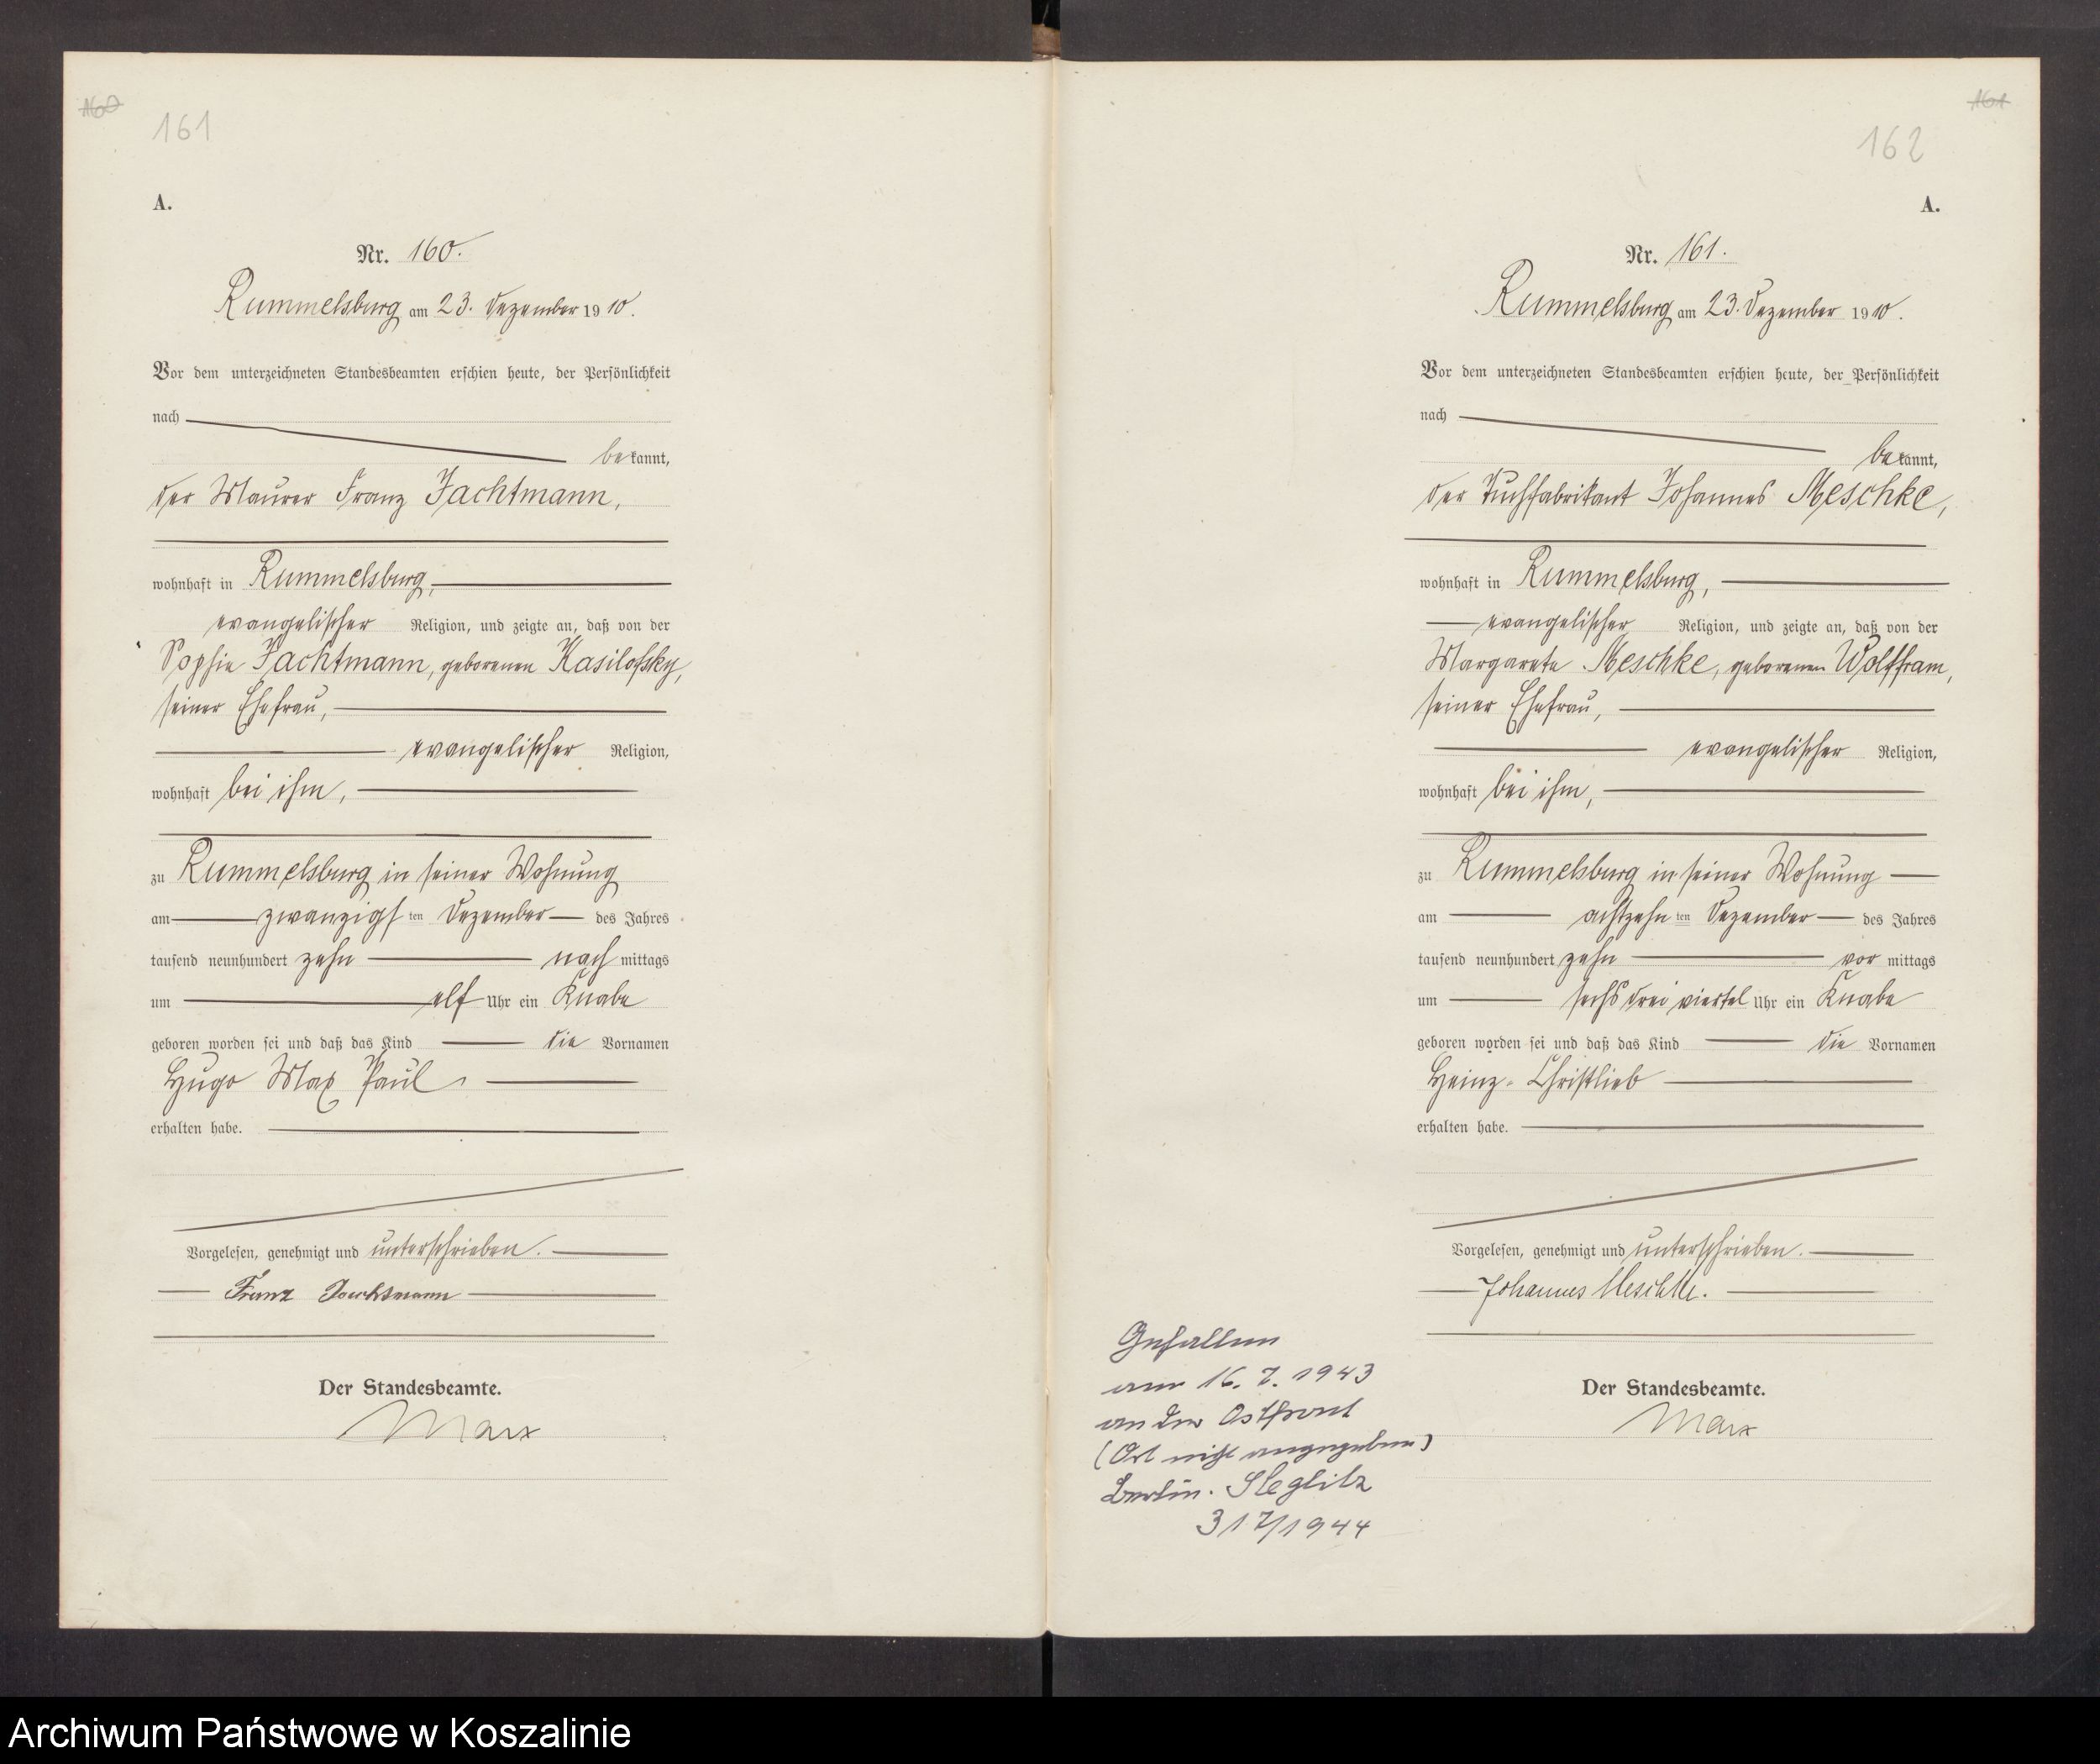 160
161
A.
Nr. 160.
Rummelsburg am 23. Dezember 1910.
Vor dem unterzeichneten Standesbeamten erschien heute, der Persönlichkeit
nach
bekannt,
der Maurer Franz Jachtmann,
wohnhaft in Rummelsburg,
evangelischer Religion, und zeigte an, daß von der
Sophie Jachtmann, geborenen Kasilofsky,
seiner Ehefrau,
evangelischer Religion,
wohnhaft bei ihm,
zu Rummelsburg in seiner Wohnung
am zwanzigsten Dezember des Jahres
tausend neunhundert zehn nachmittags
um elf Uhr ein Knabe
geboren worden sei und daß das Kind die Vornamen
Hugo Max Paul
erhalten habe.
Vorgelesen, genehmigt und unterschrieben.
Franz Jachtmann
Der Standesbeamte.
Marx
161
162
A.
Nr. 161.
Rummelsburg am 23. Dezember 1910.
Vor dem unterzeichneten Standesbeamten erschien heute, der Persönlichkeit
nach
bekannt,
der Tuchfabrikant Johannes Meschke,
wohnhaft in Rummelsburg,
evangelischer Religion, und zeigte an, daß von der
Margarete Meschke, geborenen Wolffram,
seiner Ehefrau,
evangelischer Religion,
wohnhaft bei ihm,
zu Rummelsburg in seiner Wohnung
am achtzehnten Dezember des Jahres
tausend neunhundert zehn vormittags
um sechs drei viertel Uhr ein Knabe
geboren worden sei und daß das Kind die Vornamen
Heinz-Christlieb
erhalten habe.
Vorgelesen, genehmigt und unterschrieben.
Johannes Meschke.
Der Standesbeamte.
Marx
Gefallen
am 16.7.1943
an der Ostfront
(Ort nicht angegeben)
Berlin-Steglitz
317/1944
Archiwum Państwowe w Koszalinie